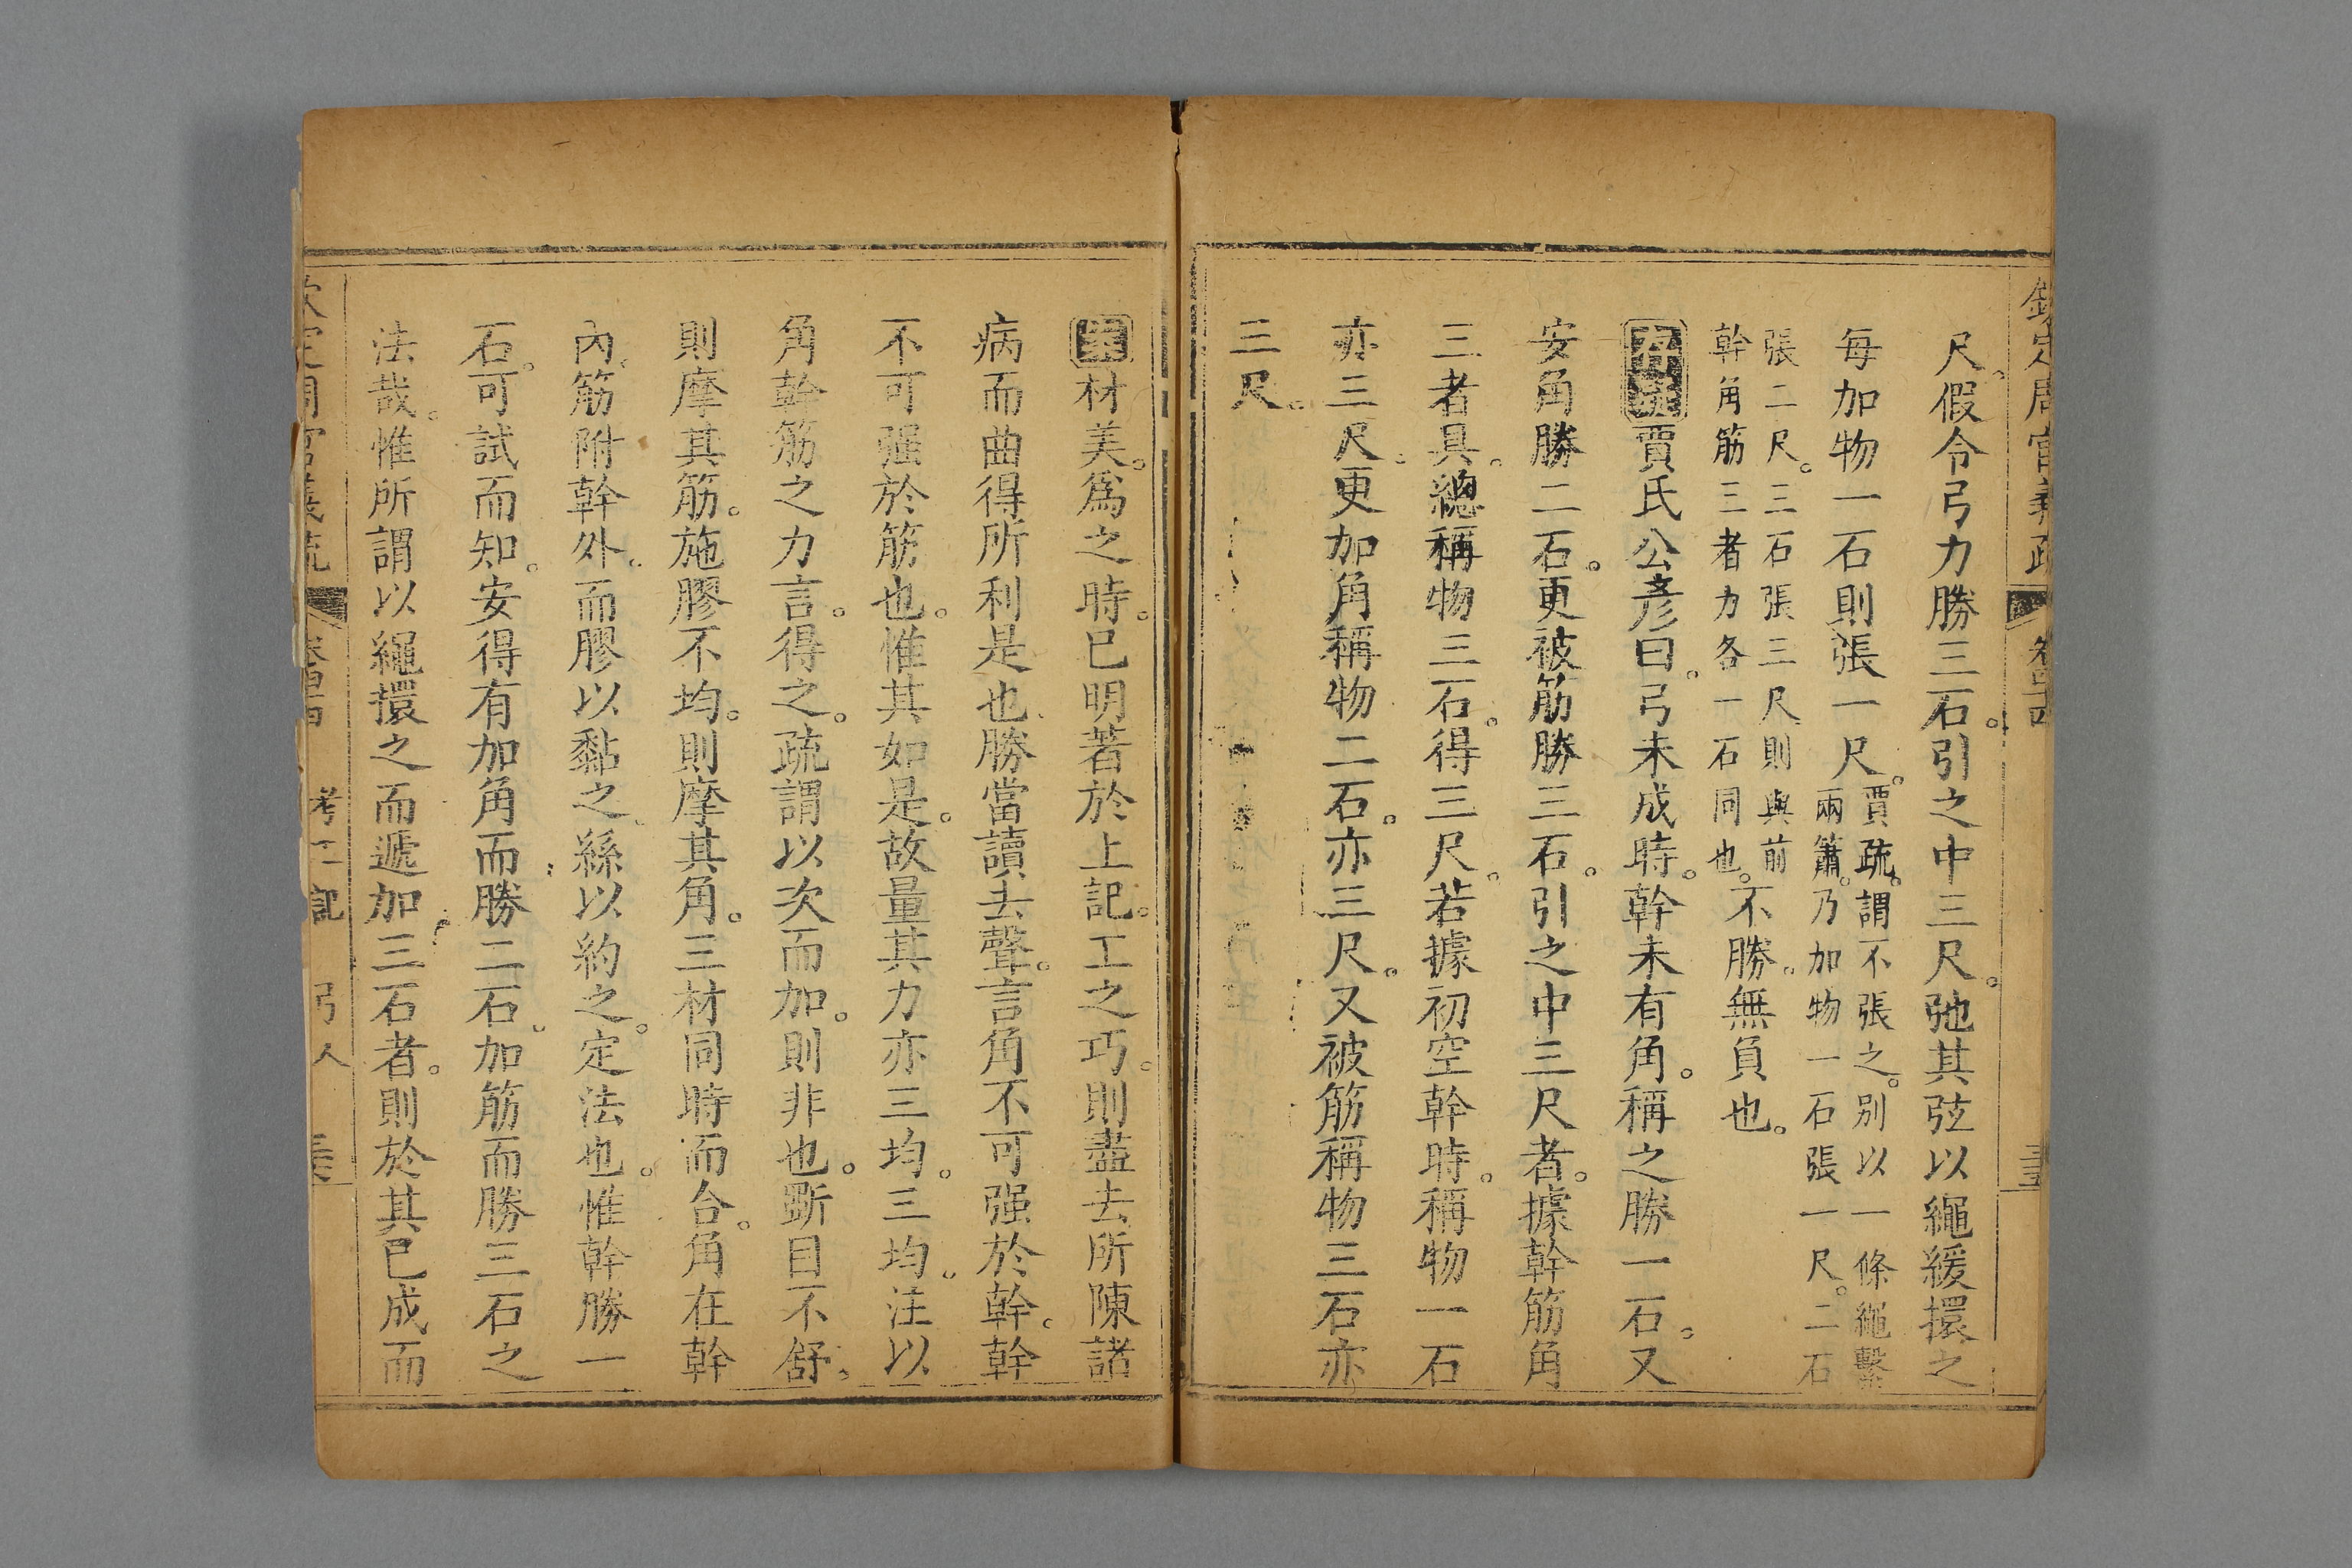 欽定周官義疏 卷四十四
尺。假令弓力勝三石。引之中三尺。弛其弦以繩緩擐之
每加物一石則張一尺。賈疏。謂不張之。別以一條繩繫
兩簫。乃加物一石張一尺。二石
張二尺。三石張三尺。則與前
幹角筋三者力各一石同也。不勝。無負也。
賈氏公彥曰。弓未成時。幹未有角。稱之勝一石。又
安角勝二石。更被筋勝三石。引之中三尺者。據幹筋角
三者具。總稱物三石。得三尺。若據初空幹時。稱物一石
亦三尺。更加角稱物二石。亦三尺。又被筋稱物三石亦
三尺。
材美。爲之時。已明著於上記。工之巧。則盡去所陳諸
病而曲得所利是也。勝當讀去聲。言角不可强於幹。幹
不可强於筋也。惟其如是。故量其力亦三均。三均。注以
角幹筋之力言。得之。疏謂以次而加。則非也。斲目不舒。
則摩其筋。施膠不均。則摩其角。三材同時而合。角在幹
內。筋附幹外。而膠以黏之。絲以約之。定法也。惟幹勝一
石。可試而知。安得有加角而勝二石。加筋而勝三石之
法哉。惟所謂以繩擐之而遞加三石者。則於其已成而
欽定周官義疏 卷四十四 考工記 弓人